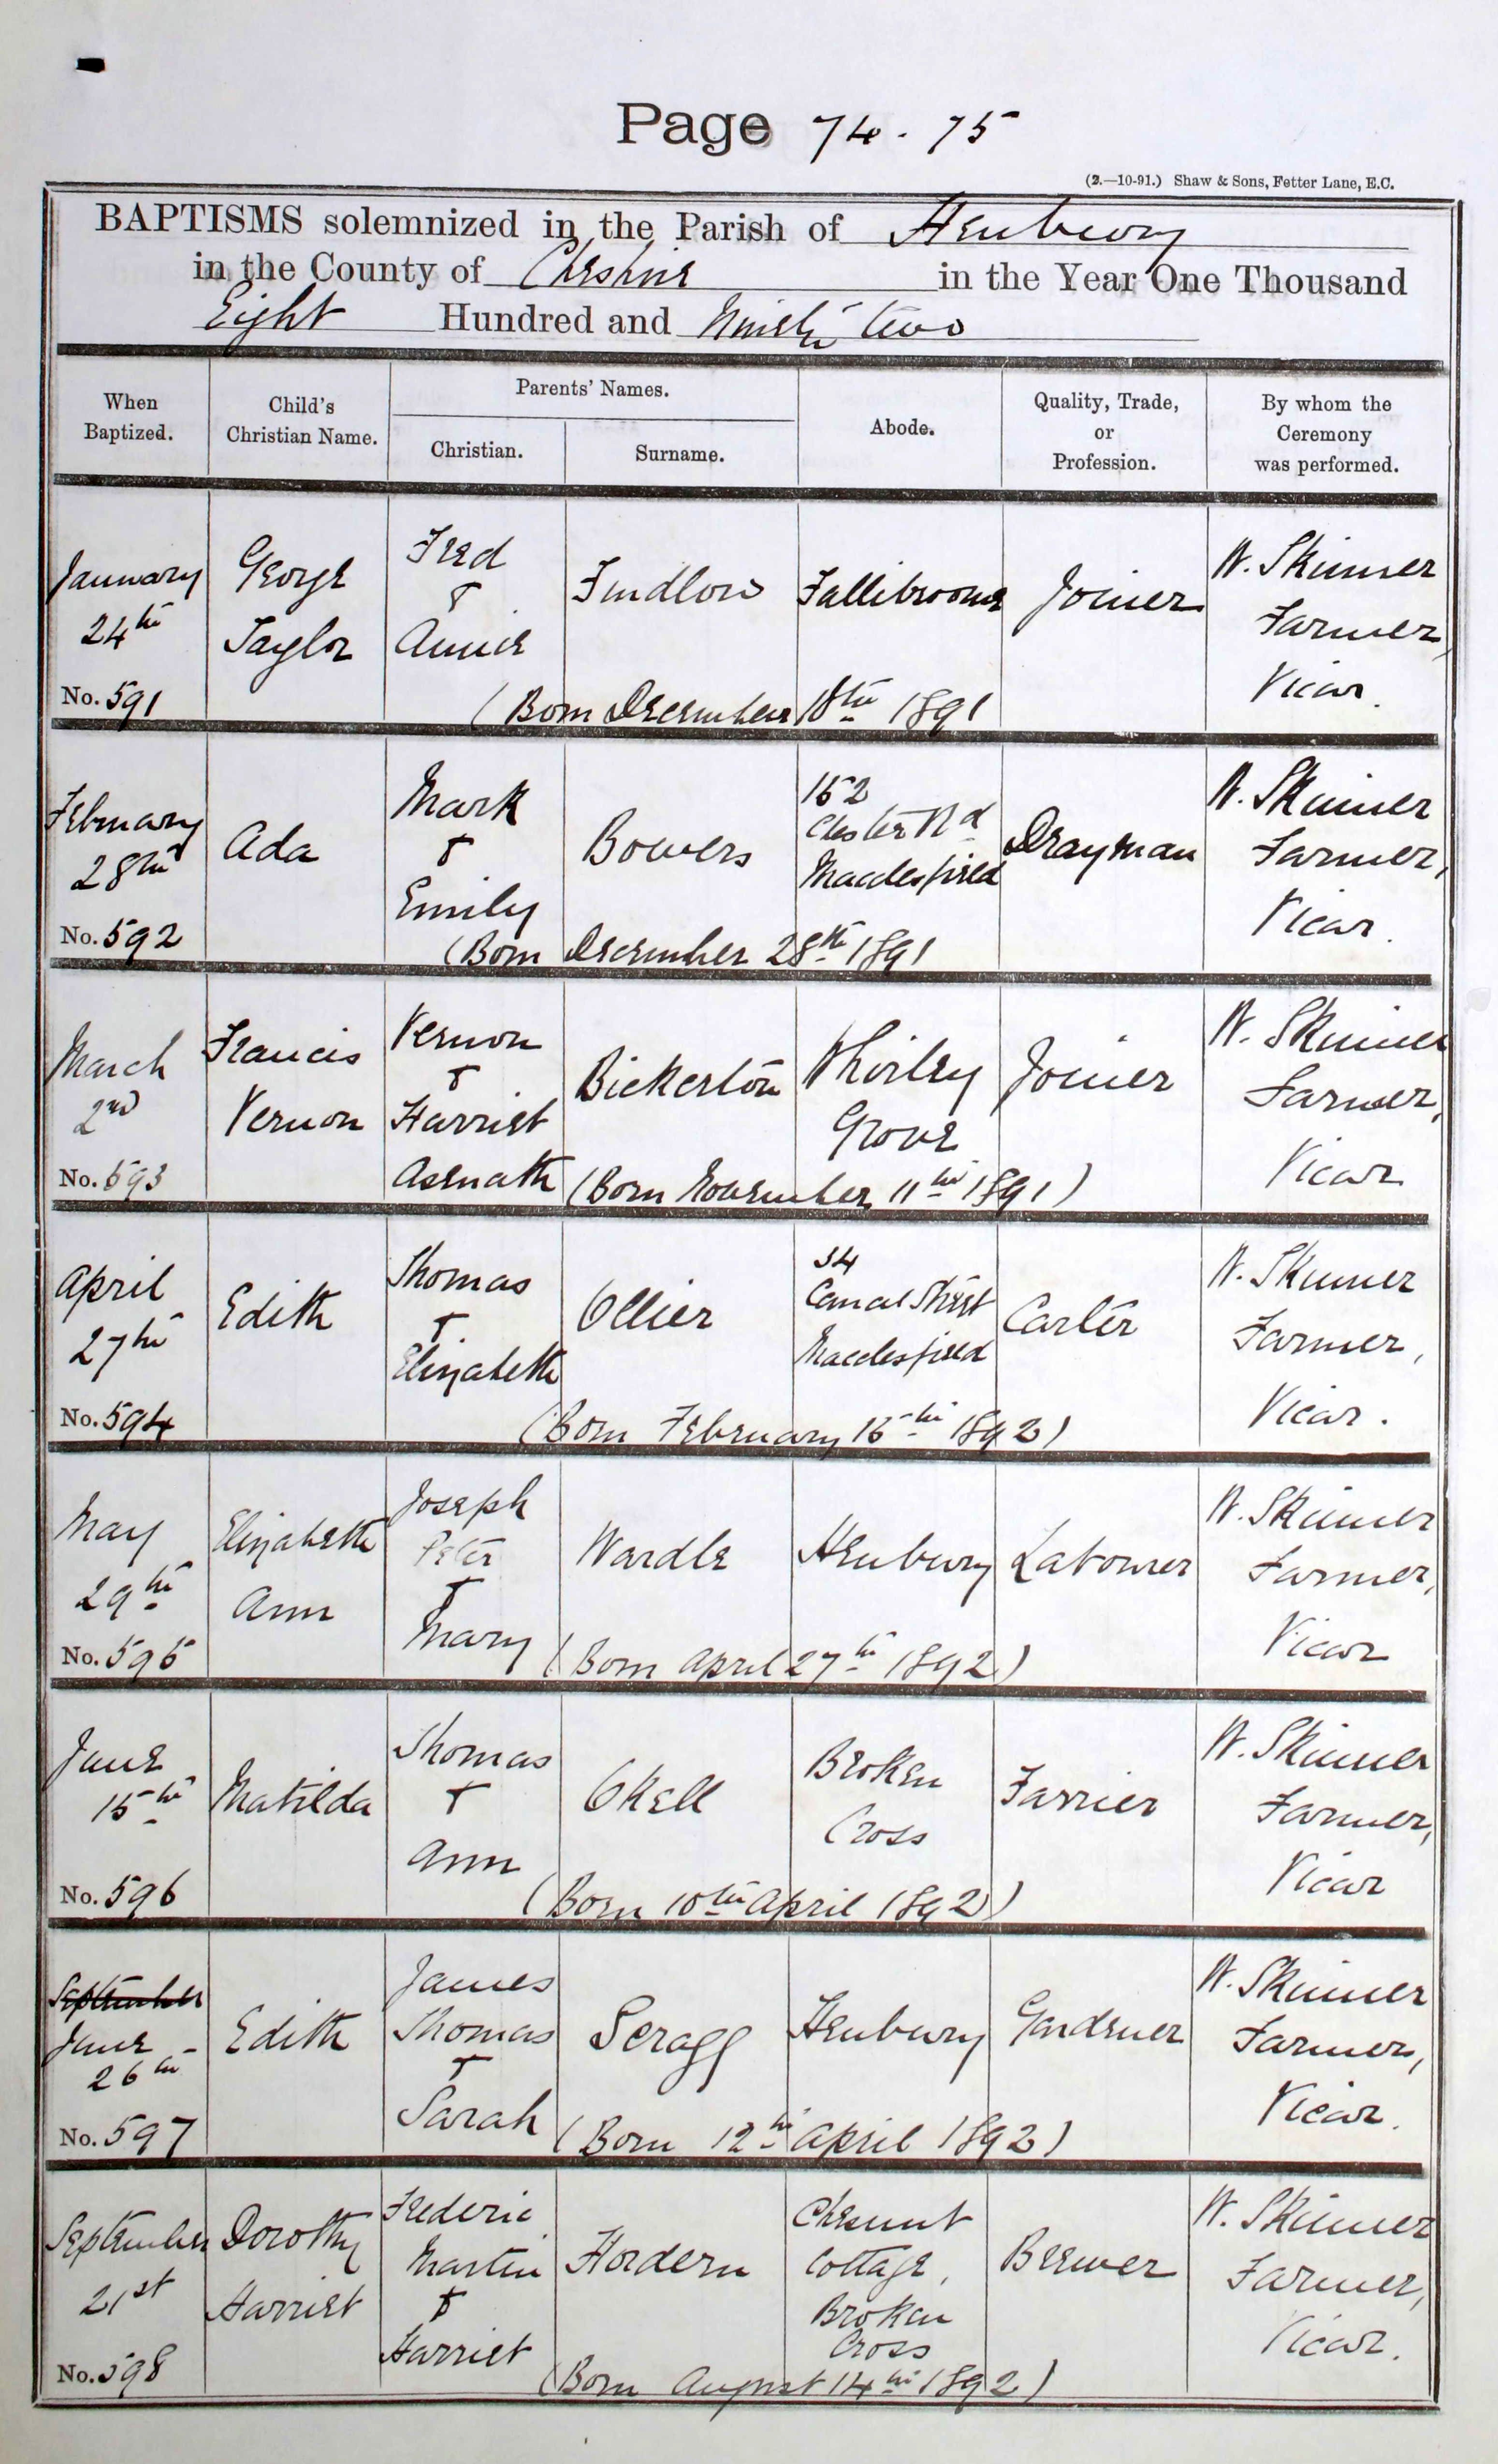 Page 74 - 75
(2.—10-91.) Shaw & Sons, Fetter Lane, E.C.
BAPTISMS solemnized in the Parish of Henbury
in the County of Cheshire in the Year One Thousand
Eight Hundred and Ninety two
When Baptized.
Child's Christian Name.
Parents' Names.
Christian.
Surname.
Abode.
Quality, Trade, or Profession.
By whom the Ceremony was performed.
January
24th
No. 591
George
Taylor
Fred
&
Annie
Findlow
Fallibroome
Joiner
W. Skinner
Farmer,
Vicar.
(Born December 18th 1891
February
28th
No. 592
Ada
Mark
&
Emily
Bowers
152
Chester Rd
Macclesfield
Drayman
W. Skinner
Farmer,
Vicar.
(Born December 28th 1891
March
2nd
No. 593
Francis
Vernon
Vernon
&
Harriet
Asenath
Bickerton
Whirley
Grove
Joiner
W. Skinner
Farmer,
Vicar
(Born November 11th 1891)
April
27th
No. 594
Edith
Thomas
&
Elizabeth
Ollier
34
Canal Street
Macclesfield
Carter
W. Skinner
Farmer,
Vicar.
(Born February 15th 1892)
May
29th
No. 595
Elizabeth
Ann
Joseph
Peter
&
Mary
Wardle
Henbury
Labourer
W. Skinner
Farmer,
Vicar
(Born April 27th 1892)
June
15th
No. 596
Matilda
Thomas
&
Ann
Okell
Broken
Cross
Farrier
W. Skinner
Farmer,
Vicar
(Born 10th April 1892)
September
June
26th
No. 597
Edith
James
Thomas
&
Sarah
Scragg
Henbury
Gardener
W. Skinner
Farmer,
Vicar.
(Born 12th April 1892)
September
21st
No. 598
Dorothy
Harriet
Frederic
Martin
&
Harriet
Hordern
Chesnut
Cottage,
Broken
Cross
Brewer
W. Skinner
Farmer,
Vicar.
(Born August 14th 1892)